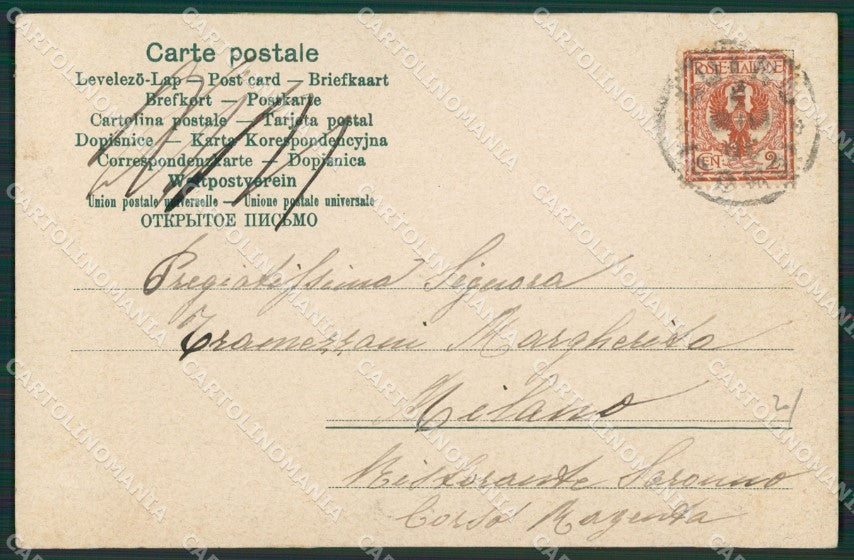 Carte postale
Levelező-Lap — Post card — Briefkaart
Brefkort — Postkarte
Cartolina postale — Tarjeta postal
Dopisnice — Karta Korespondencyjna
Correspondenzkarte — Dopisnica
Weltpostverein
Union postale universelle — Unione postale universale
ОТКРЫТОЕ ПИСЬМО
POSTE ITALIANE
CEN. 2
Pregiatissima Signora
Tramezzani Margherita
Milano
21
Ristorante Saronno
Corso Magenta
CARTOLINOMANIA